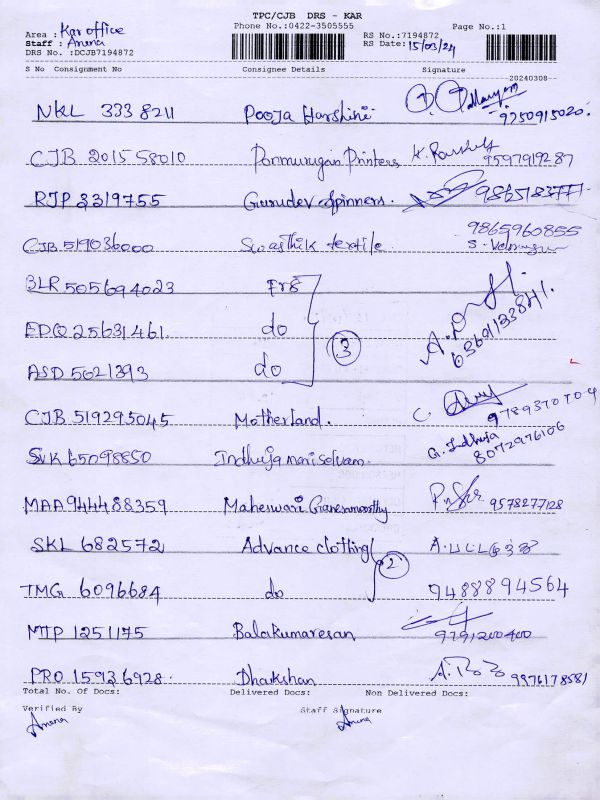 TPC/CJB DRS - KAR
Phone No.:0422-3505555
Page No.:1
Area : Kar office
Staff : Amena
DRS No. :DCJB7194872
RS No.:7194872
RS Date: 15/03/24
S No Consignment No Consignee Details Signature
20240308
NKL 3338211 Pooja Harshini 9750915020
CJB 201558010 Ponmurugan Printers 9597919287
RJP 3319755 Gurudev Spinners. 9865183771
CJB 519036000 Swasthik textile 9865960855
BLR 505694023 Frs
EDQ 25631461. do 3 6369133841.
ASD 5021393 do
CJB 519295045 Motherland. 9789370704
SVK 65098850 Indhuja maniselvam. G. Indhuja 8072976106
MAA 944488359 Maheswari Ganesmoorthy 9578277128
SKL 682572 Advance clothing
TMG 6096684 do 2 9488894564
MTP 1251175 Balakumaresan 9791200400
PRO 15936928. Dhakshan 9976178581
Total No. Of Docs: Delivered Docs: Non Delivered Docs:
Verified By Staff Signature